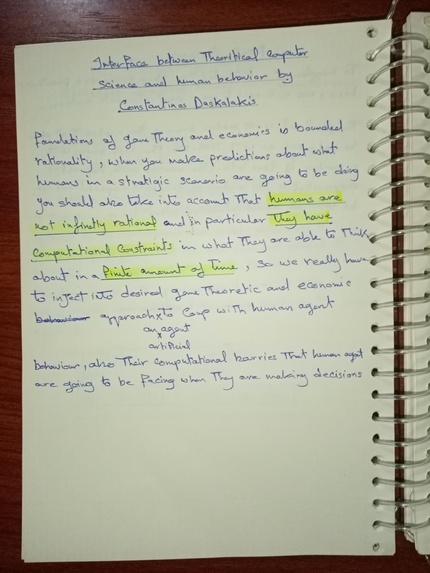 Interface between Theoritical computer
science and human behavior by
Constantinos Daskalakis
foundations of game Theory and economics is bounded
rationality, when you make predictions about what
humans in a strategic scenario are going to be doing
you should also take into account That humans are
not infinetly rational and in particular They have
Computational Constraints in what They are able to Think
about in a finite amount of Time, so we really have
to inject into desired game Theoretic and economic
behaviour approach to Coup with human agent
an agent
artificial
behaviour, also Their computational barries That human agent
are going to be facing when They are making decisions